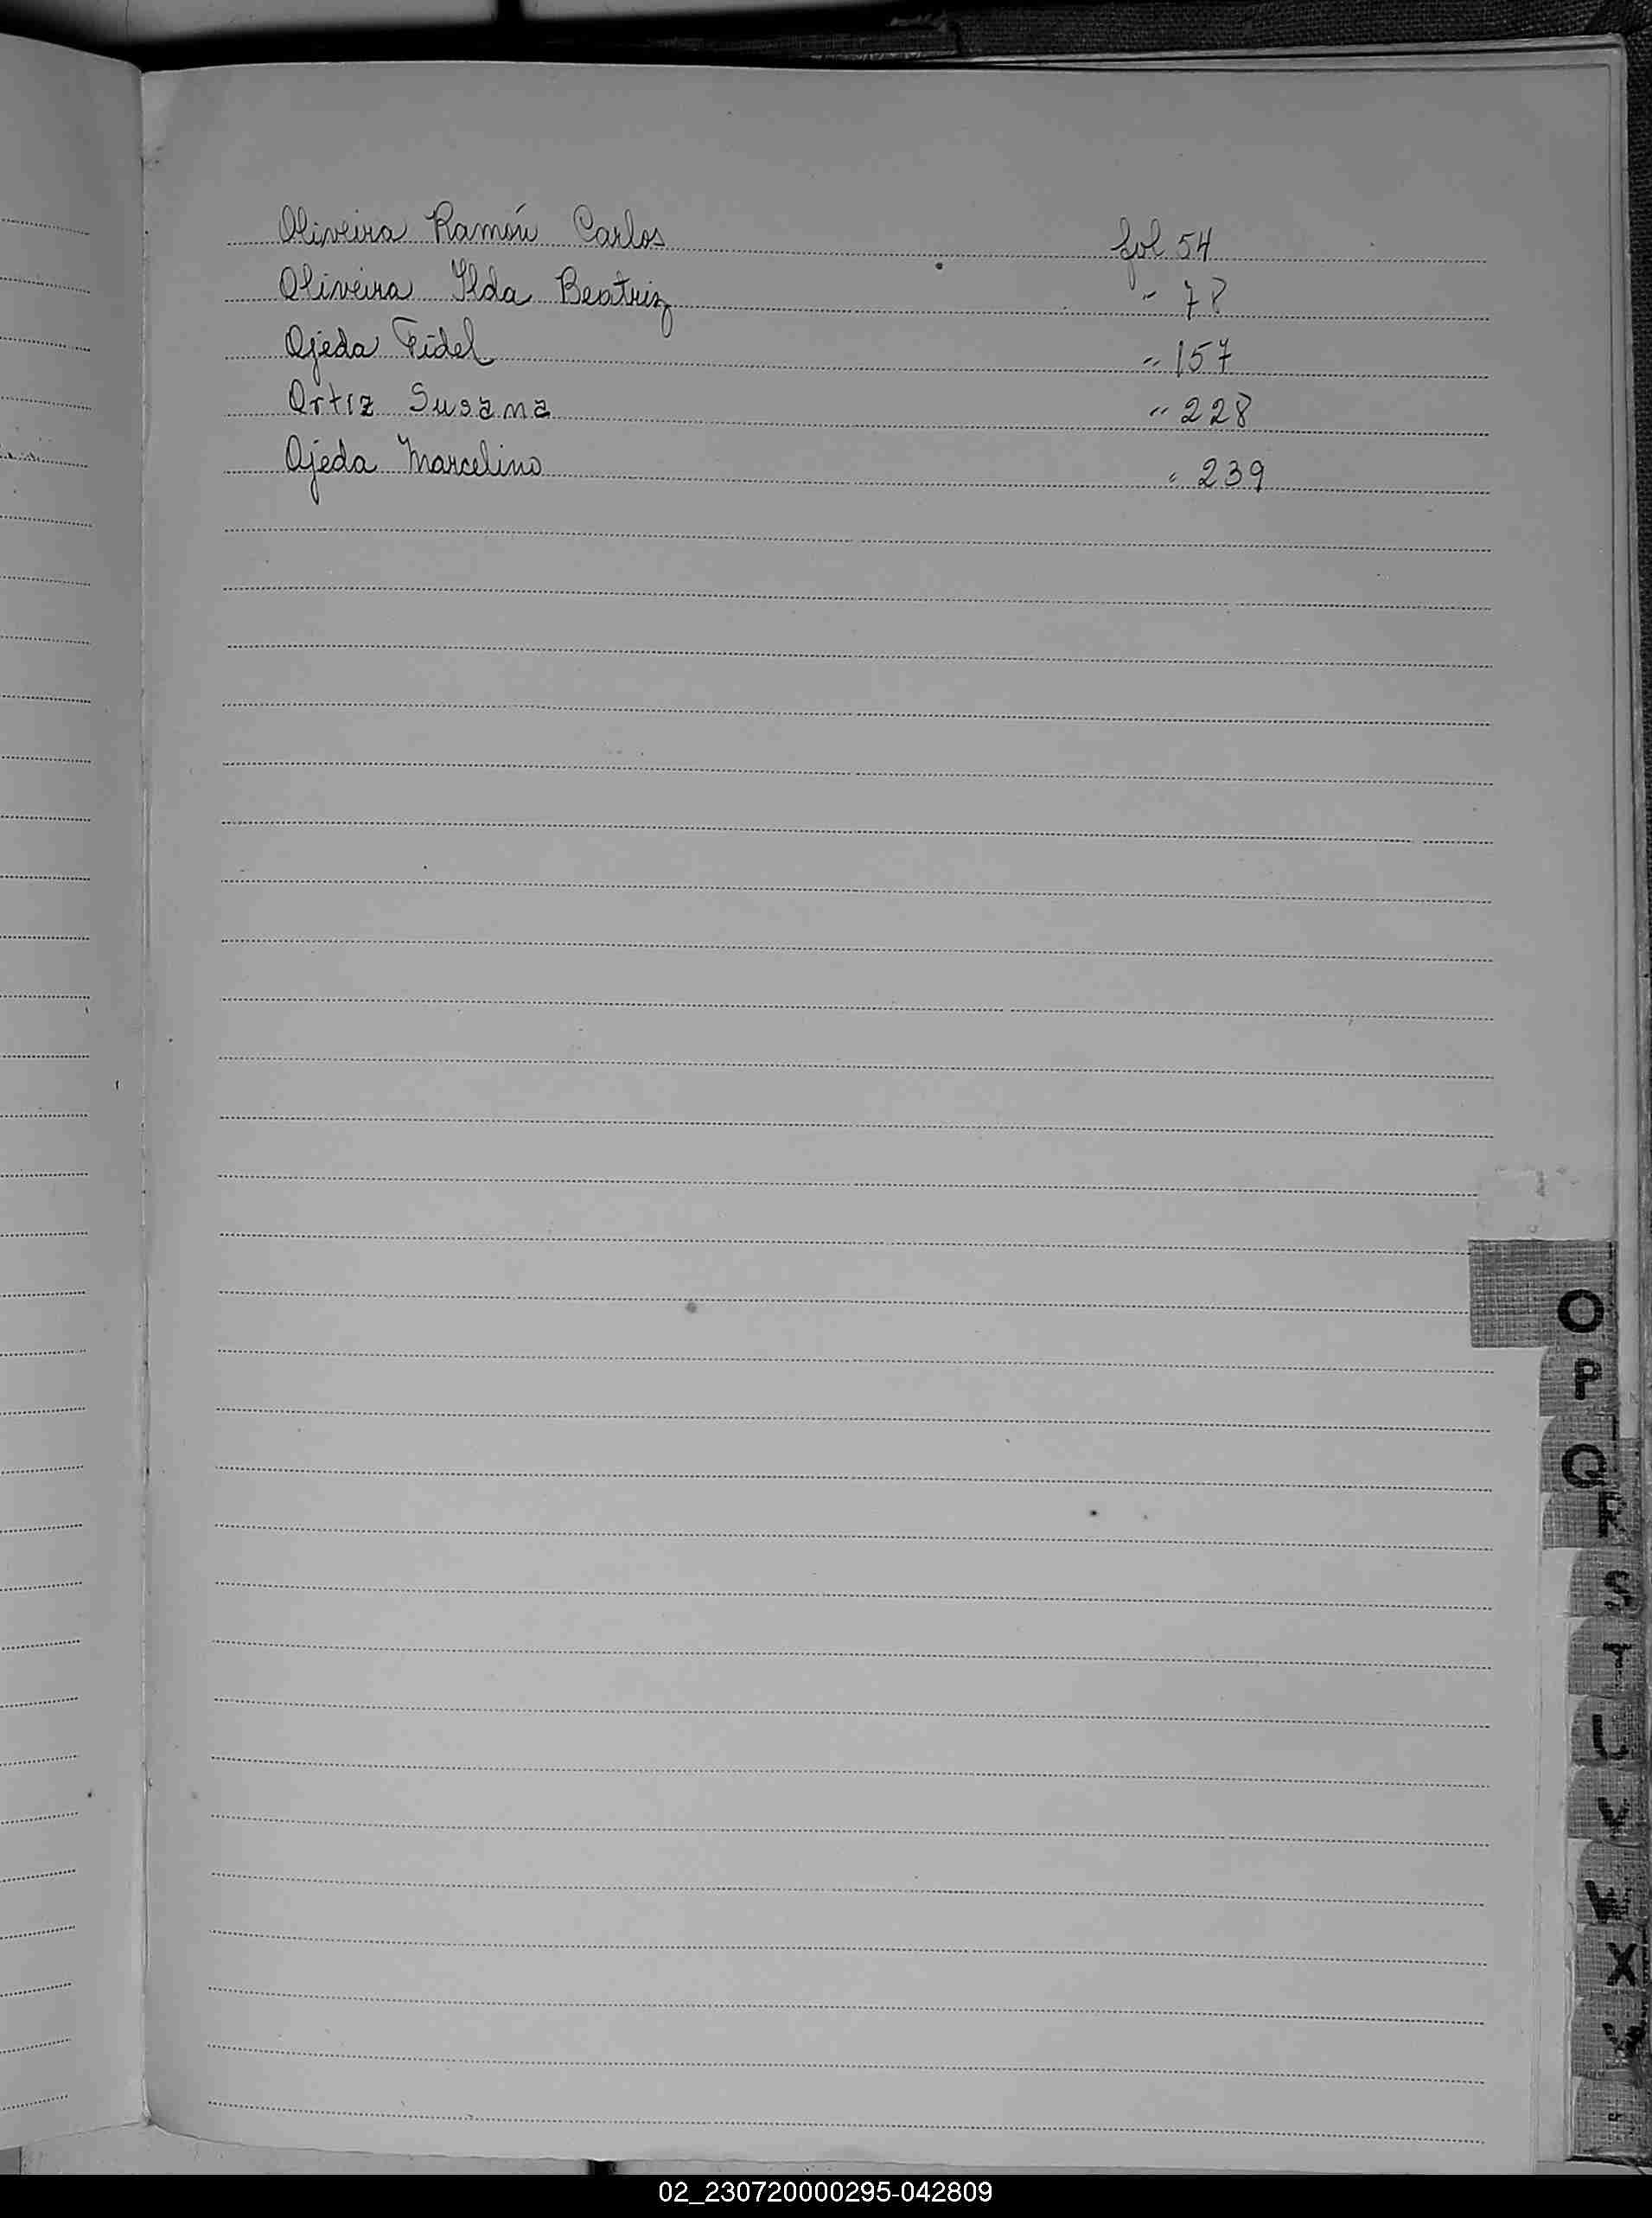 Oliveira Ramón Carlos fol 54
Oliveira Ilda Beatriz " 78
Ojeda Fidel " 157
Ortiz Susana " 228
Ojeda Marcelino " 239
O
P
Q
R
S
T
U
V
W
X
02_230720000295-042809